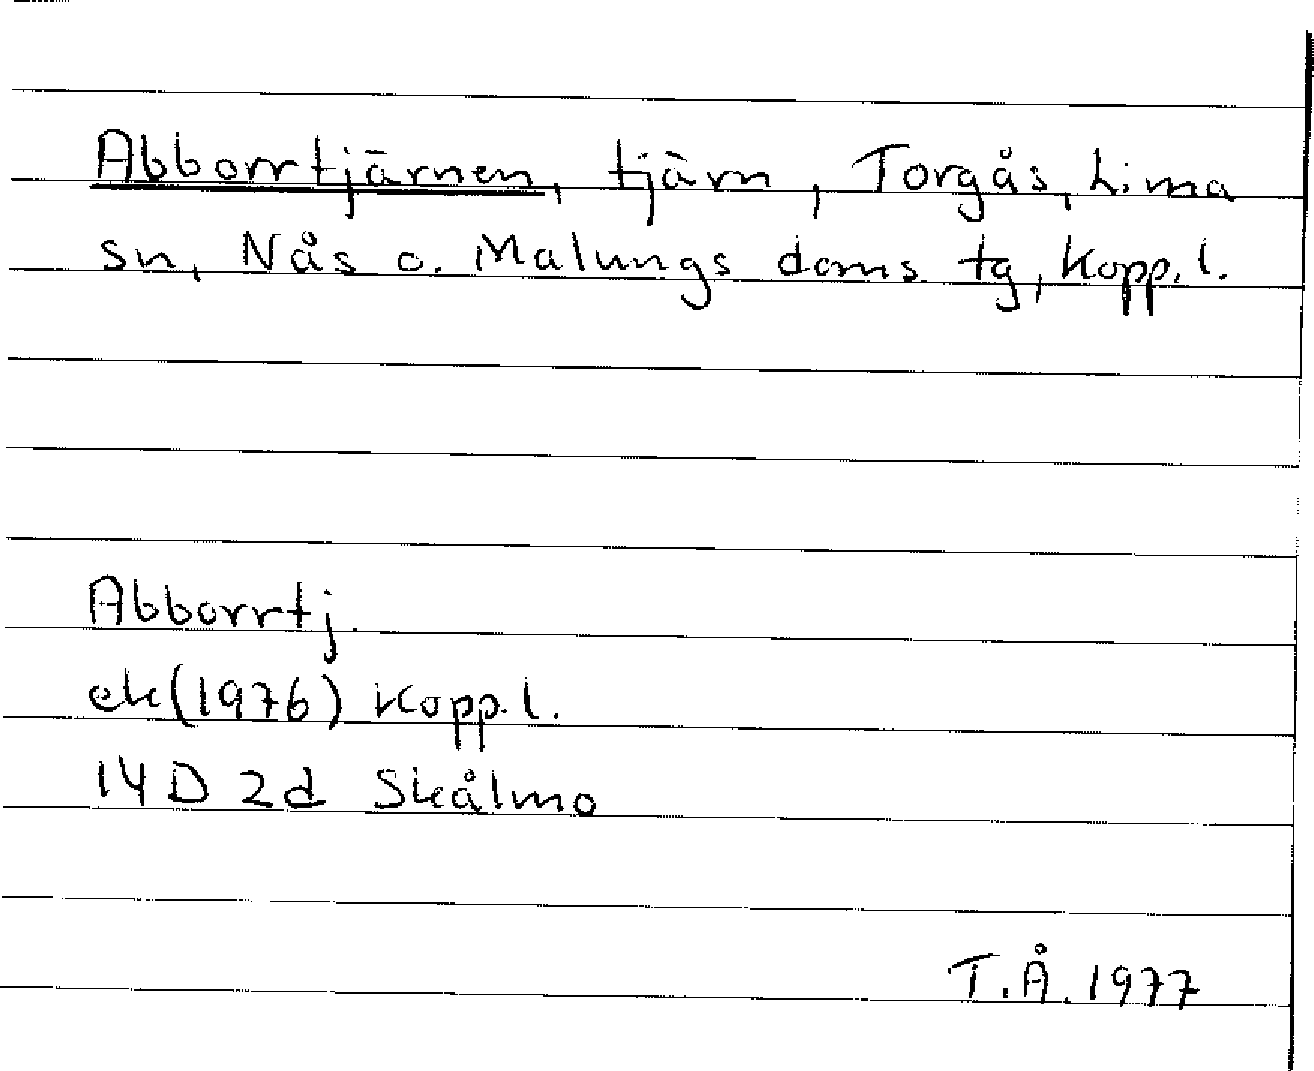 Abborrtjärnen, tjärn, Torgås, Lima
sn, Nås o. Malungs doms. tg, Kopp. l.
Abborrtj.
ek(1976) Kopp. l.
14 D 2d Skålmo
T.Å. 1977